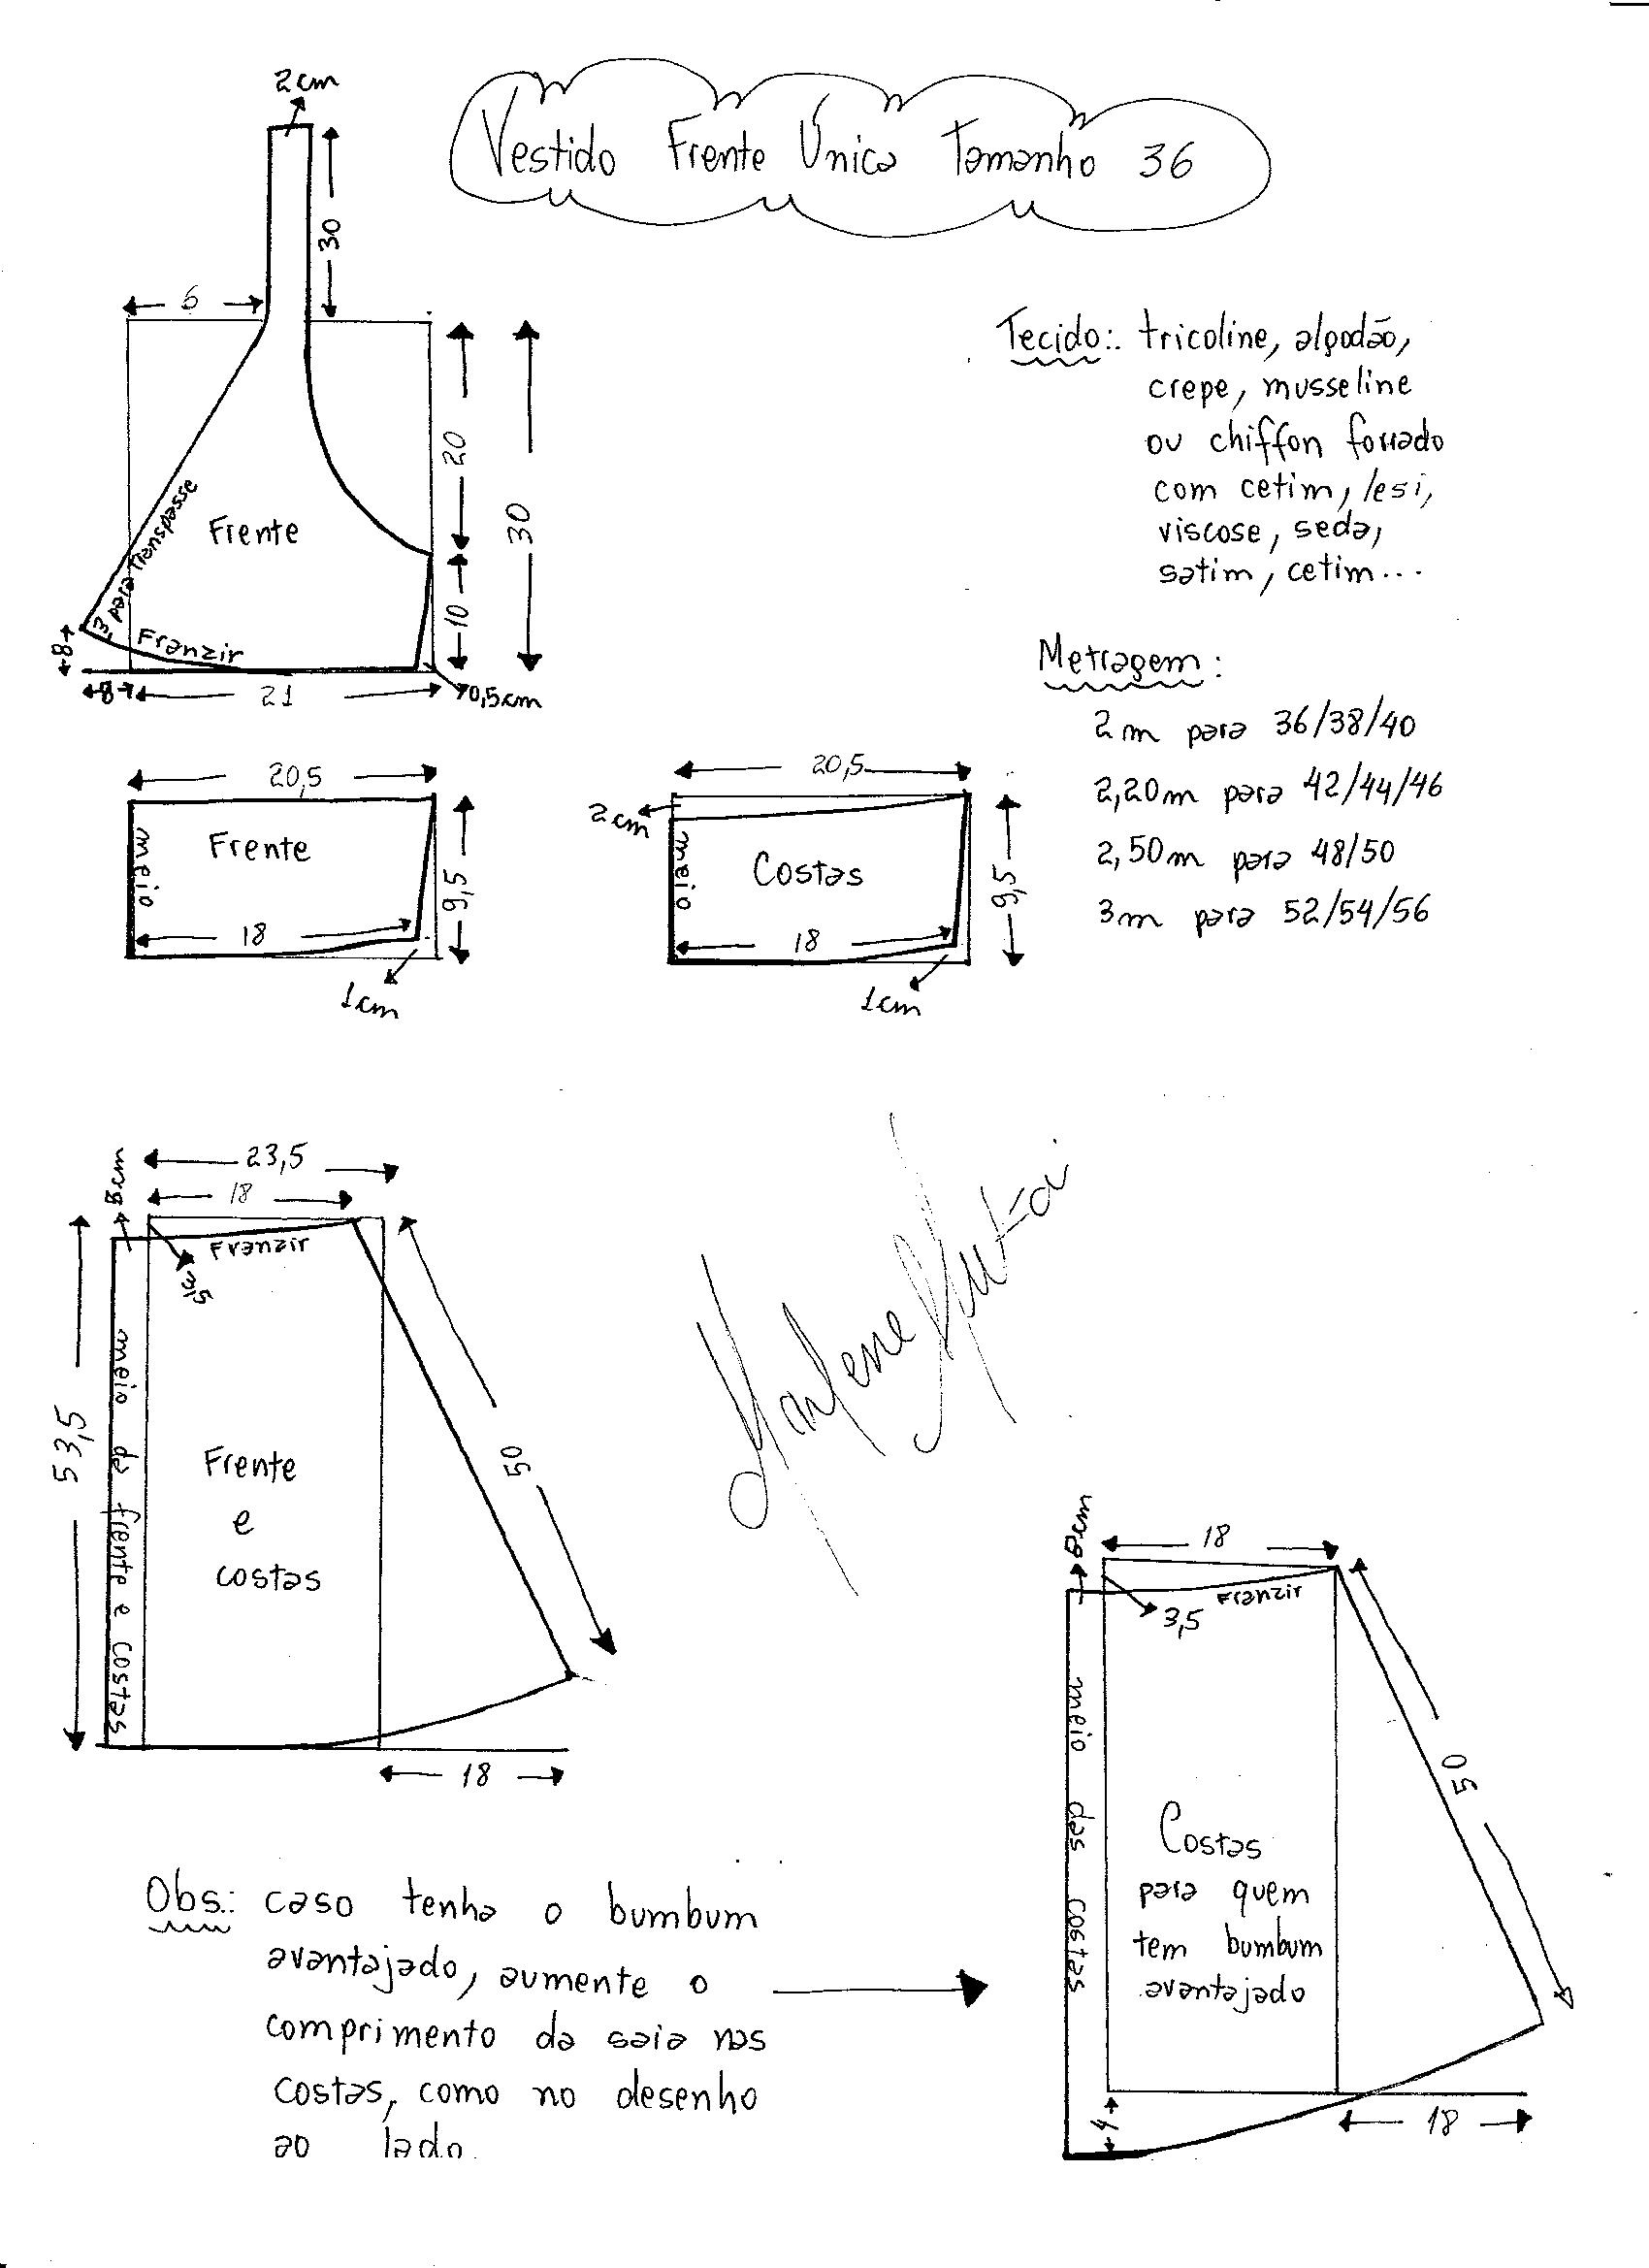 Vestido Frente Única Tamanho 36
2cm
30
6
Frente
3, para transpasse
Franzir
8
8
21
0,5cm
20
10
30
Tecido: tricoline, algodão,
crepe, musseline
ou chiffon forrado
com cetim, lesi,
viscose, seda,
satim, cetim...
Metragem:
2m para 36/38/40
2,20m para 42/44/46
2,50m para 48/50
3m para 52/54/56
20,5
meio
Frente
18
9,5
1cm
20,5
2cm
meio
Costas
18
9,5
1cm
23,5
18
Franzir
3,5
53,5
meio da frente e costas
Frente
e
costas
50
18
Marlene
18
Franzir
3,5
meio das costas
Costas
para quem
tem bumbum
avantajado
50
4
18
Obs.: caso tenha o bumbum
avantajado, aumente o
comprimento da saia nas
costas, como no desenho
ao lado.